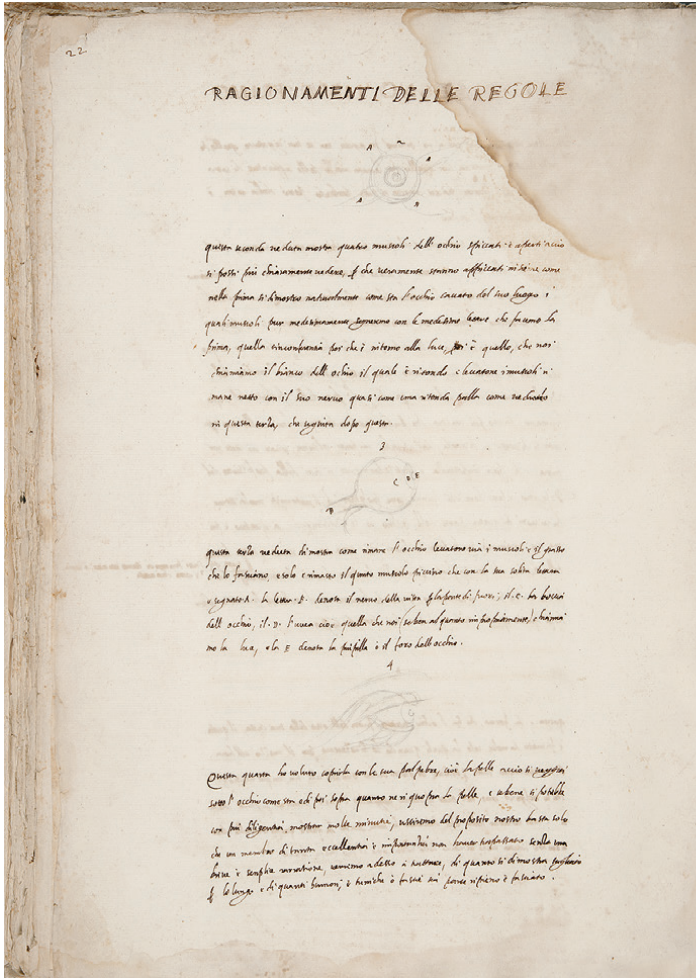 22
RAGIONAMENTI DELLE REGOLE
A
questa seconda veduta mostra quatro muscoli dell ochio spiccati e aperti accio
si possi piu chiaramente vedere, che veramente stanno come
nella prima si dimostro naturalmente come sta l'occhio cavato del suo luogo i
quali muscoli pur medesimamente segnaremo con le medesime che facemo la
prima, quella circonferenza poi che è ritorno alla luce, poi è quello, che noi
chiamiamo il bianco dell ochio il quale è ritondo e levatone i muscoli ri
mane netto con il suo nervo quasi come una ritonda palla come vedrete
in questa terza, che seguita dopo questa.
3
C D E
B
questa terza veduta dimostra come rimane l'occhio levatone via i muscoli e il grasso
che lo fasciano, e solo è rimasto il quinto muscolo piccino che con la sua solita
segnato A. la lettera B. denota il nervo della il C. la
dell occhio, il D. l'uvea cioe quella che noi se ben alquanto impropriamente chiamia
mo la luce, e la E denota la pupilla è il foro dell occhio.
4
Questa quarta ho voluto copirla con le sua palpebre, cioè la pelle accio si
sotto l'occhio come sta ed poi sopra quanto ne ricuopra la pelle, e se bene si potrebbe
con piu diligentia, mostrar molte minutie, del proposito nostro basta solo
che un membro di tanta eccellentia e importantia non haver trapassato senza una
breve e semplice narratione, verremo adesso a trattare, di quanto si dimostra
lo lungo e di quanti humori, e tuniche è ripieno è fasciato.